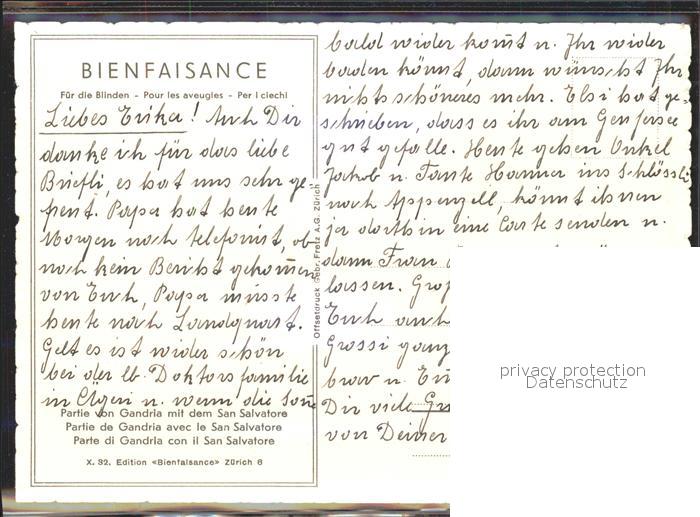 BIENFAISANCE
Für die Blinden – Pour les aveugles – Per i ciechi
Liebes Erika! Auch Dir
danke ich für das liebe
Briefli, es hat uns sehr ge-
freut. Papa hat heute
Morgen noch telefoniert, ob
noch kein Bericht gekom̄en
von Euch, Papa müsste
heute nach Landquart.
Gelt es ist wider schön
bei der lb. Doktorsfamilie
in Ägeri u. wenn die Son̄e
Partie von Gandria mit dem San Salvatore
Partie de Gandria avec le San Salvatore
Parte di Gandria con il San Salvatore
X. 32. Edition «Bienfaisance» Zürich 6
Offsetdruck Gebr. Fretz A.G. Zürich
bald wider kom̄t u. Ihr wider
baden kön̄t, dann wünscht Ihr
nichts schöneres mehr. Elsi hat ge-
schrieben, dass es ihr am Genfersee
gut gefalle. Heute gehen Onkel
Jakob u. Tante Hanna ins Schlössli
nach Appenzell, kön̄t ihnen
ja dorthin eine Carte senden u.
dann Frau
lassen.
Euch auch
Grossi ganz
brav u.
Dir viele
von Deiner
privacy protection
Datenschutz